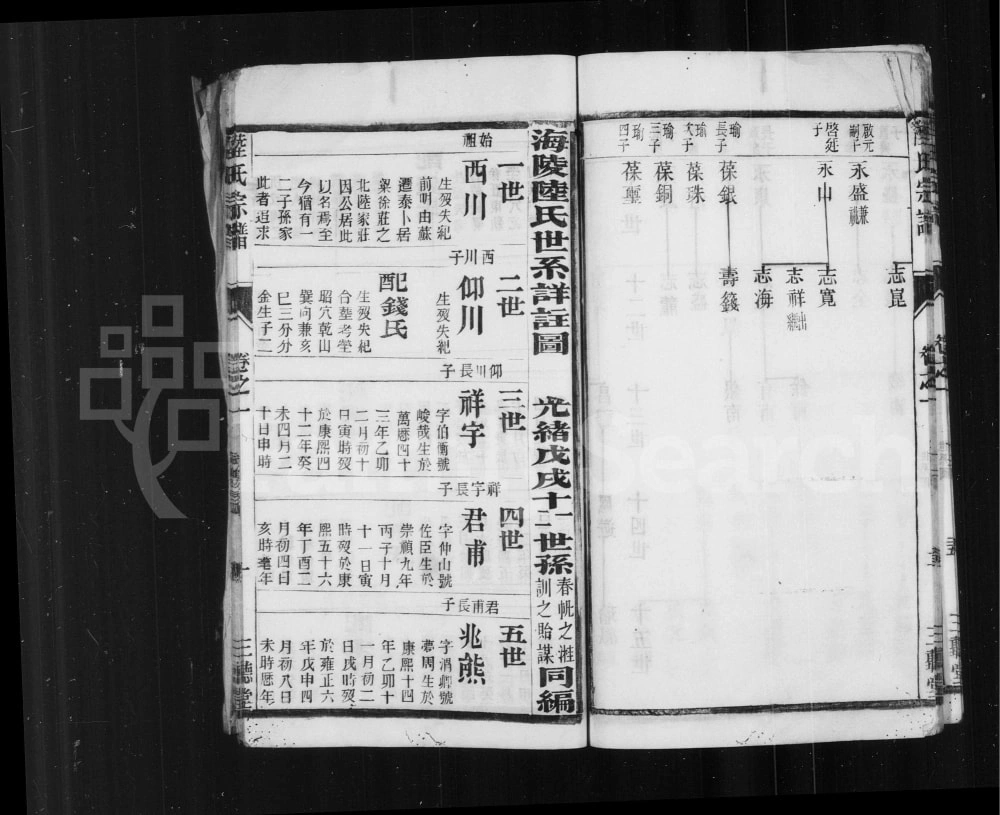 陸氏宗譜
卷之一
三聽堂
志崑
啟元嗣子
永盛兼祧
啓延子
永山
志寬
志祥出繼
志海
瑜長子
葆銀
壽籛
瑜次子
葆珠
瑜三子
葆銅
瑜四子
葆壐
海陵陸氏世系詳註圖
光緒戊戌十一世孫
春帆之淮
訓之貽謀
同編
一世
始祖
西川
生殁失紀
前明由蘇
遷泰卜居
梁徐莊之
北陸家莊
因公居此
以名焉至
今猶有一
二子孫家
此者追求
二世
西川子
仰川
生殁失紀
配錢氏
生殁失紀
合塟考塋
昭穴乾山
巽向兼亥
巳三分分
金生子二
三世
仰川長子
祥宇
字伯衡號
峻哉生於
萬曆四十
三年乙卯
二月初十
日寅時殁
於康熙四
十二年癸
未四月二
十日申時
四世
祥宇長子
君甫
字仲山號
佐臣生於
崇禎九年
丙子十月
十一日寅
時殁於康
熙五十六
年丁酉二
月初四日
亥時耄年
五世
君甫長子
兆熊
字渭卿號
夢周生於
康熙十四
年乙卯十
一月初二
日戌時殁
於雍正六
年戊申四
月初八日
未時歷年
陸氏宗譜
卷之一
三聽堂